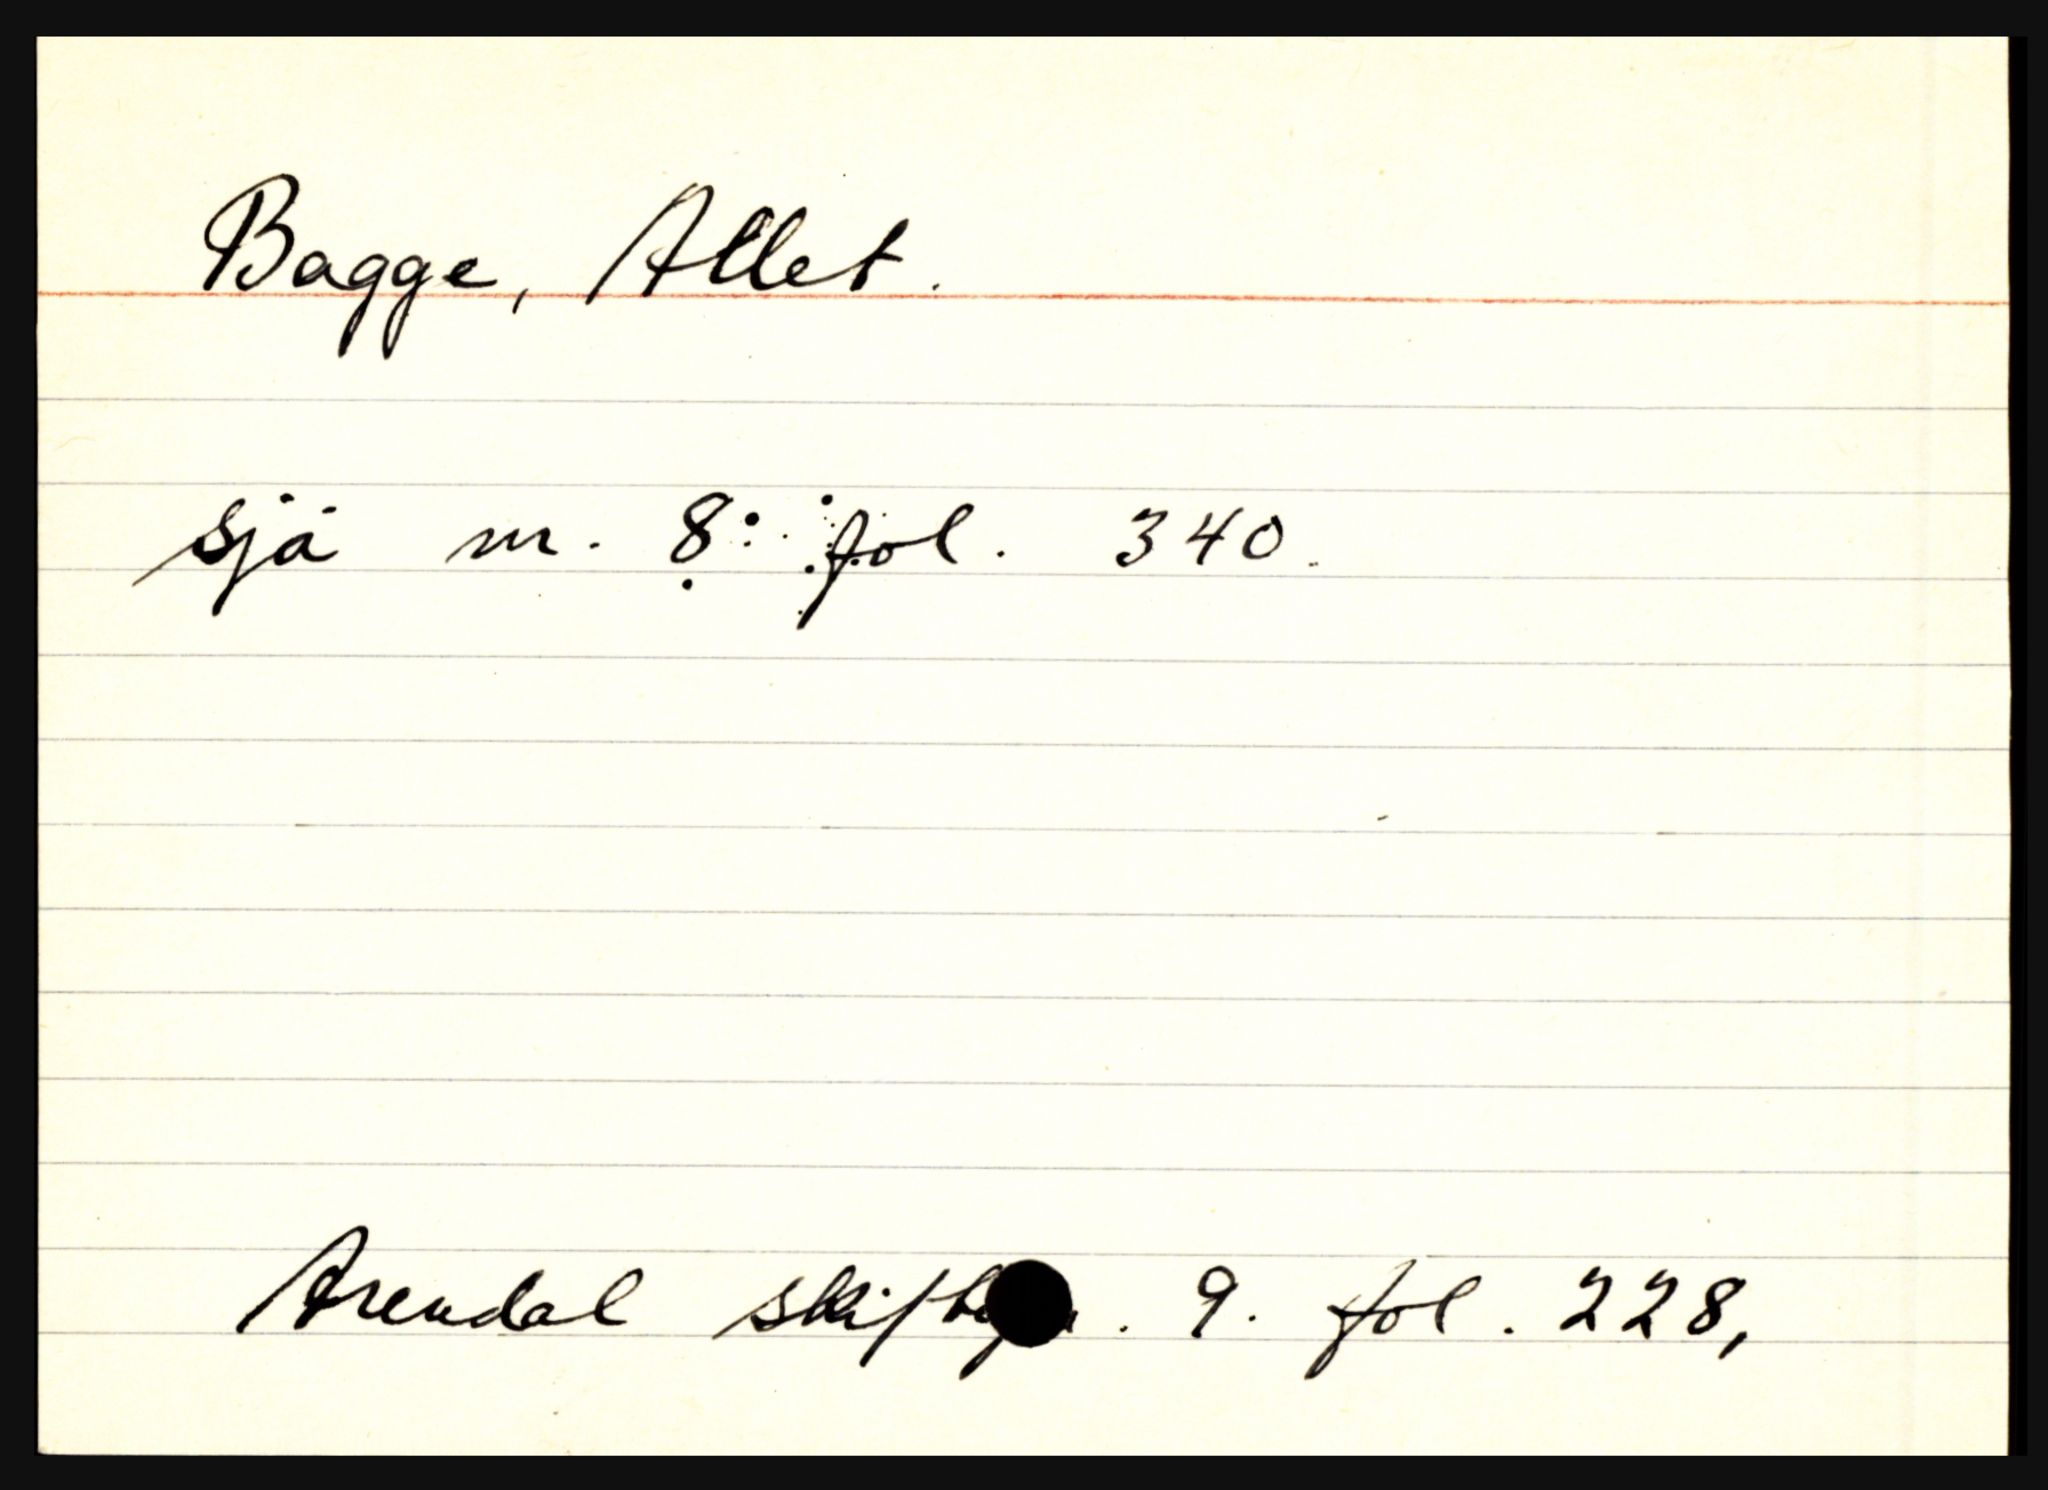 Bagge, Allet.
sjå nr. 8: fol. 340.
Arendal 9. fol. 228,